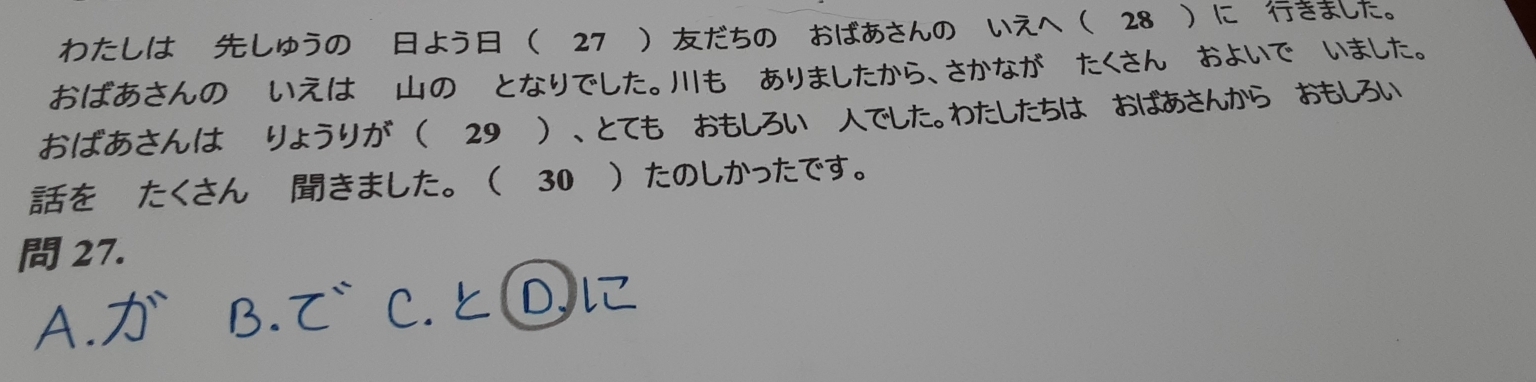 わたしは 先しゅうの 日よう日( 27 )友だちの おばあさんの いえへ( 28 )に 行きました。
おばあさんの いえは 山の となりでした。川も ありましたから、さかなが たくさん およいで いました。
おばあさんは りょうりが( 29 )、とても おもしろい 人でした。わたしたちは おばあさんから おもしろい
話を たくさん 聞きました。( 30 )たのしかったです。
問 27.
A.が B.で C.と D.に